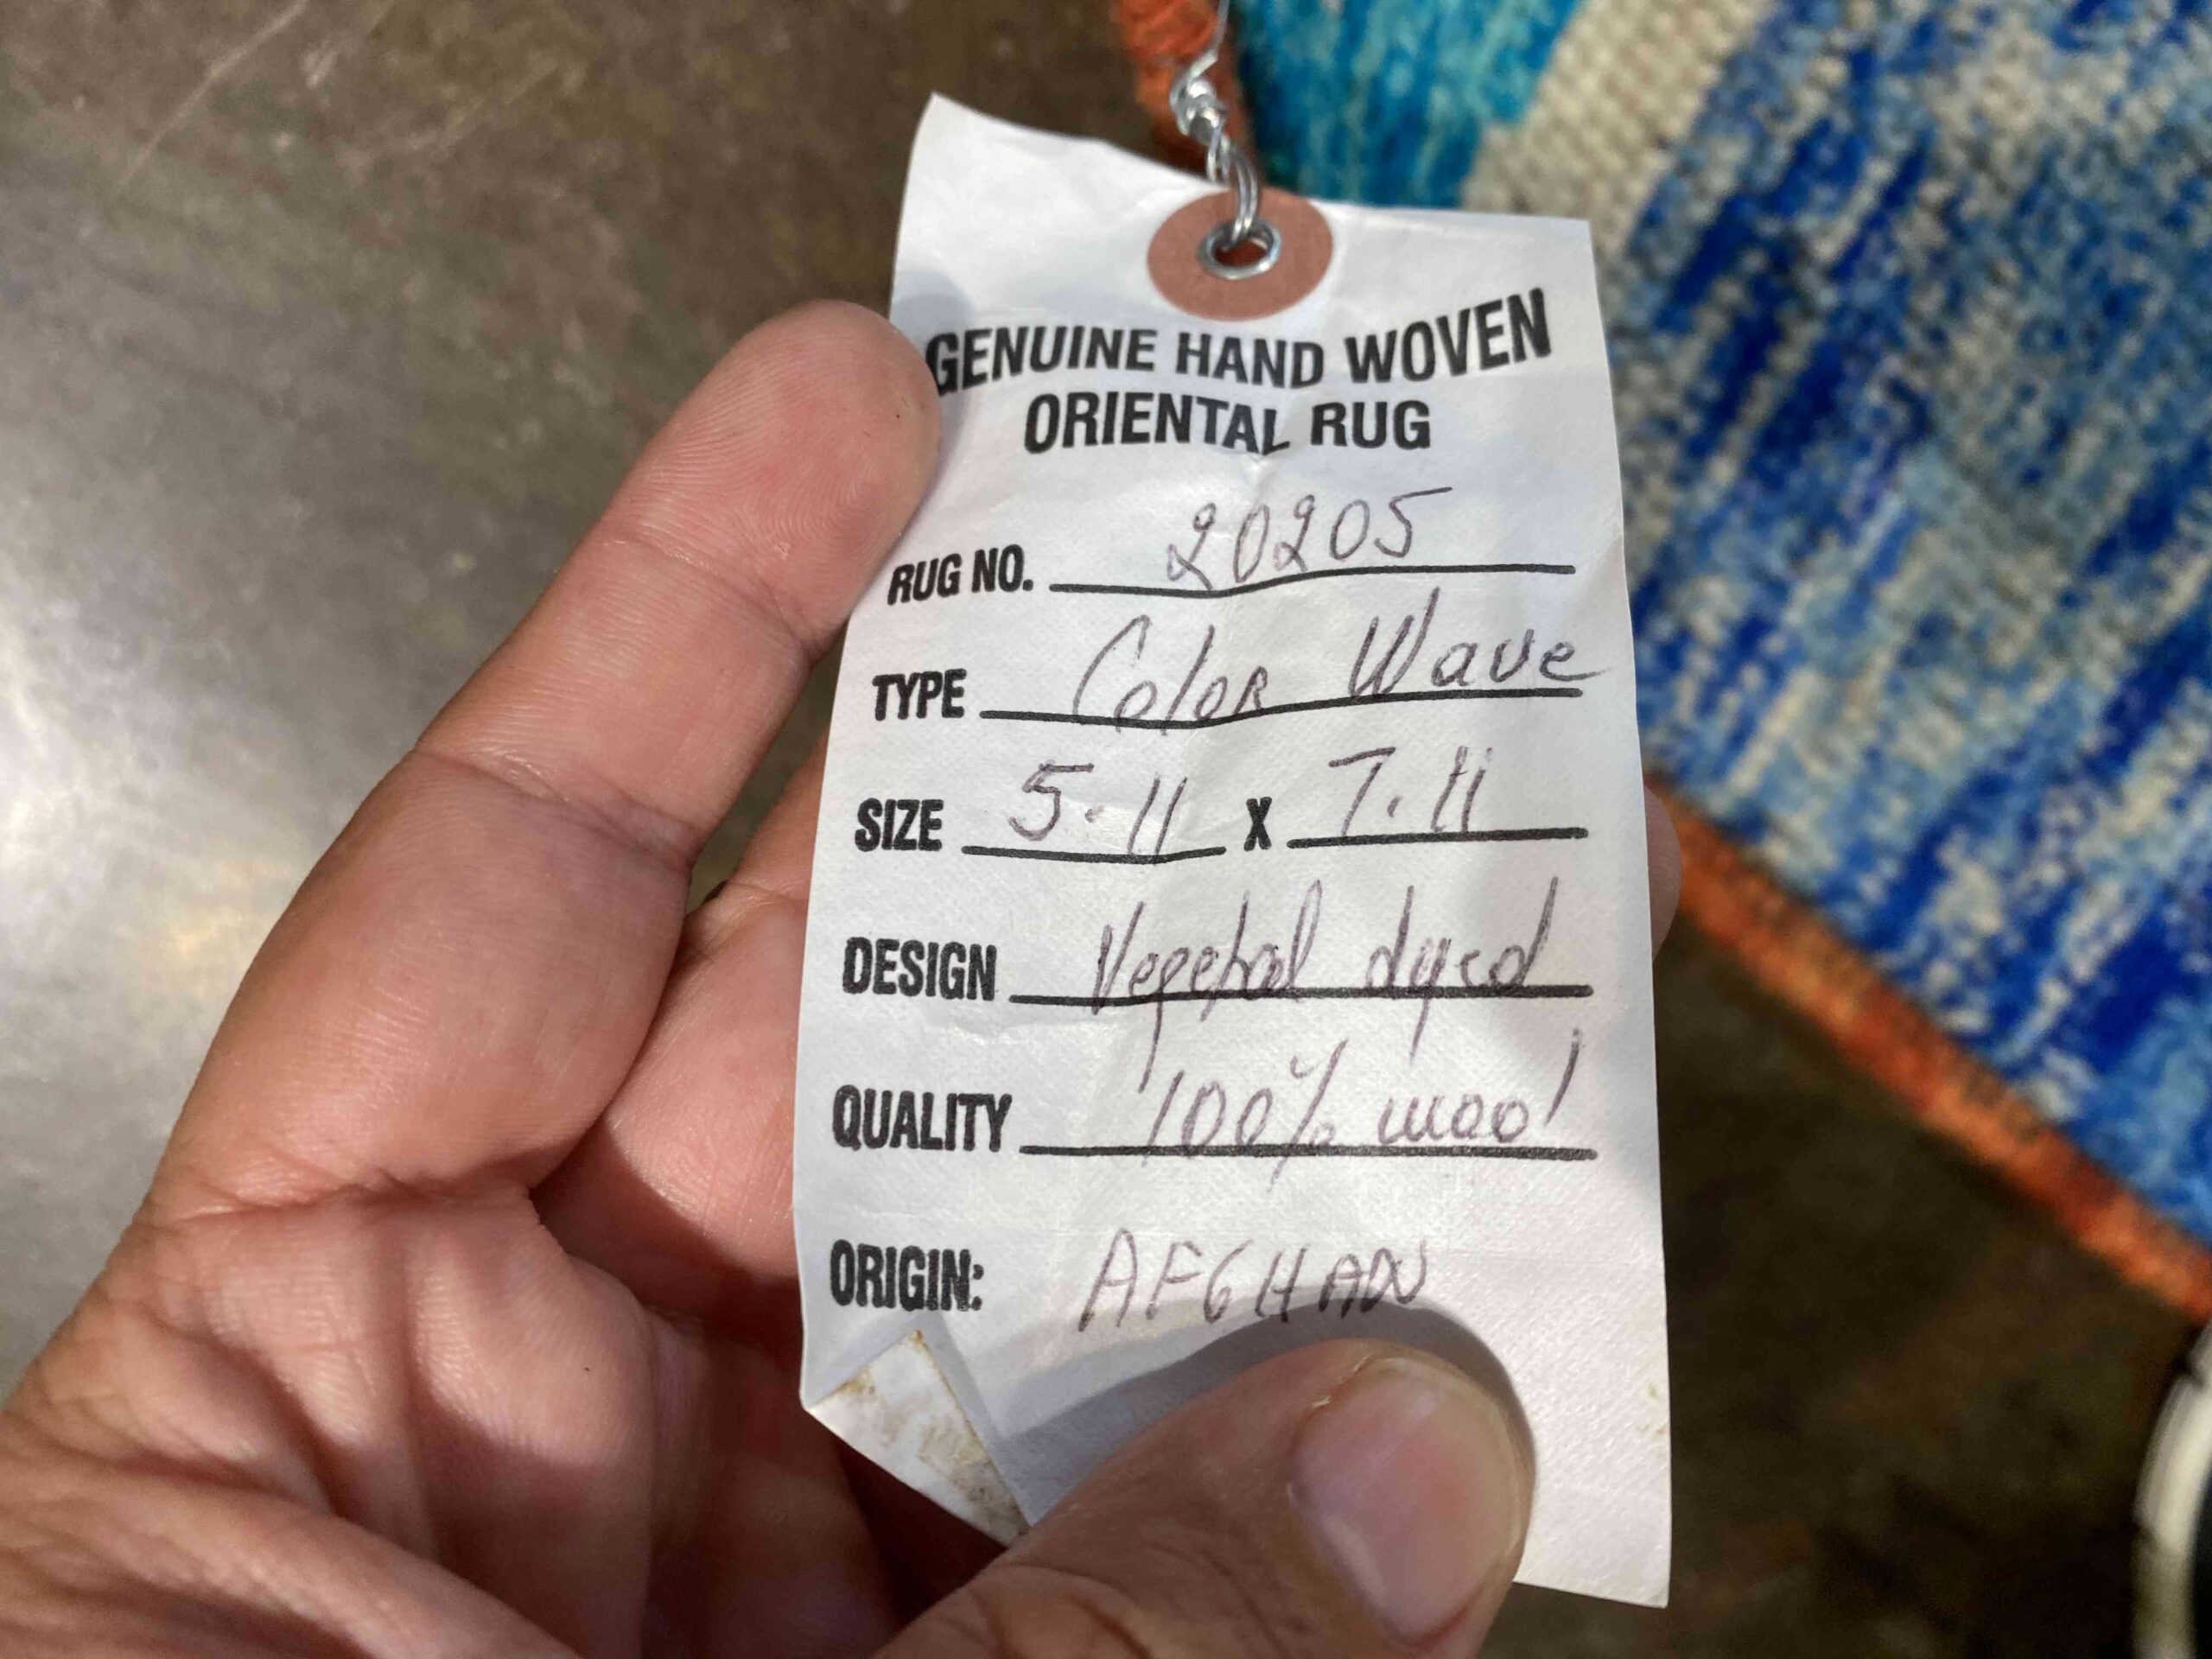 GENUINE HAND WOVEN
ORIENTAL RUG
RUG NO. 20205
TYPE Color Wave
SIZE 5.11 x 7.11
DESIGN Vegetal dyed
QUALITY 100% wool
ORIGIN: AFGHAN